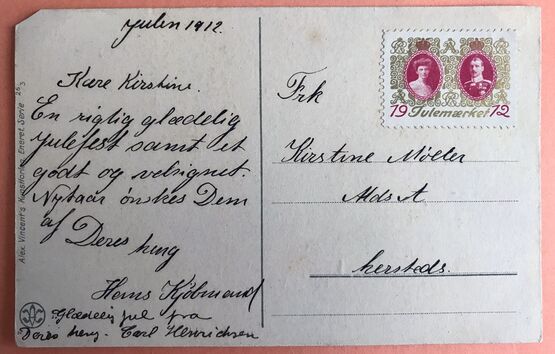 Julen 1912.
Kære Kirstine.
En rigtig glædelig
Julefest samt et
godt og velsignet.
Nytaar ønskes Dem
af
Deres heng
Hans Kjøbmand
Glædelig jul fra
Deres heng. Carl Henrichsen
Frk
Kirstine Møller
Mds A
hersteds.
19 Julemærket 12
Alex. Vincent's Kunstforlag, Eneret. Serie 26 3